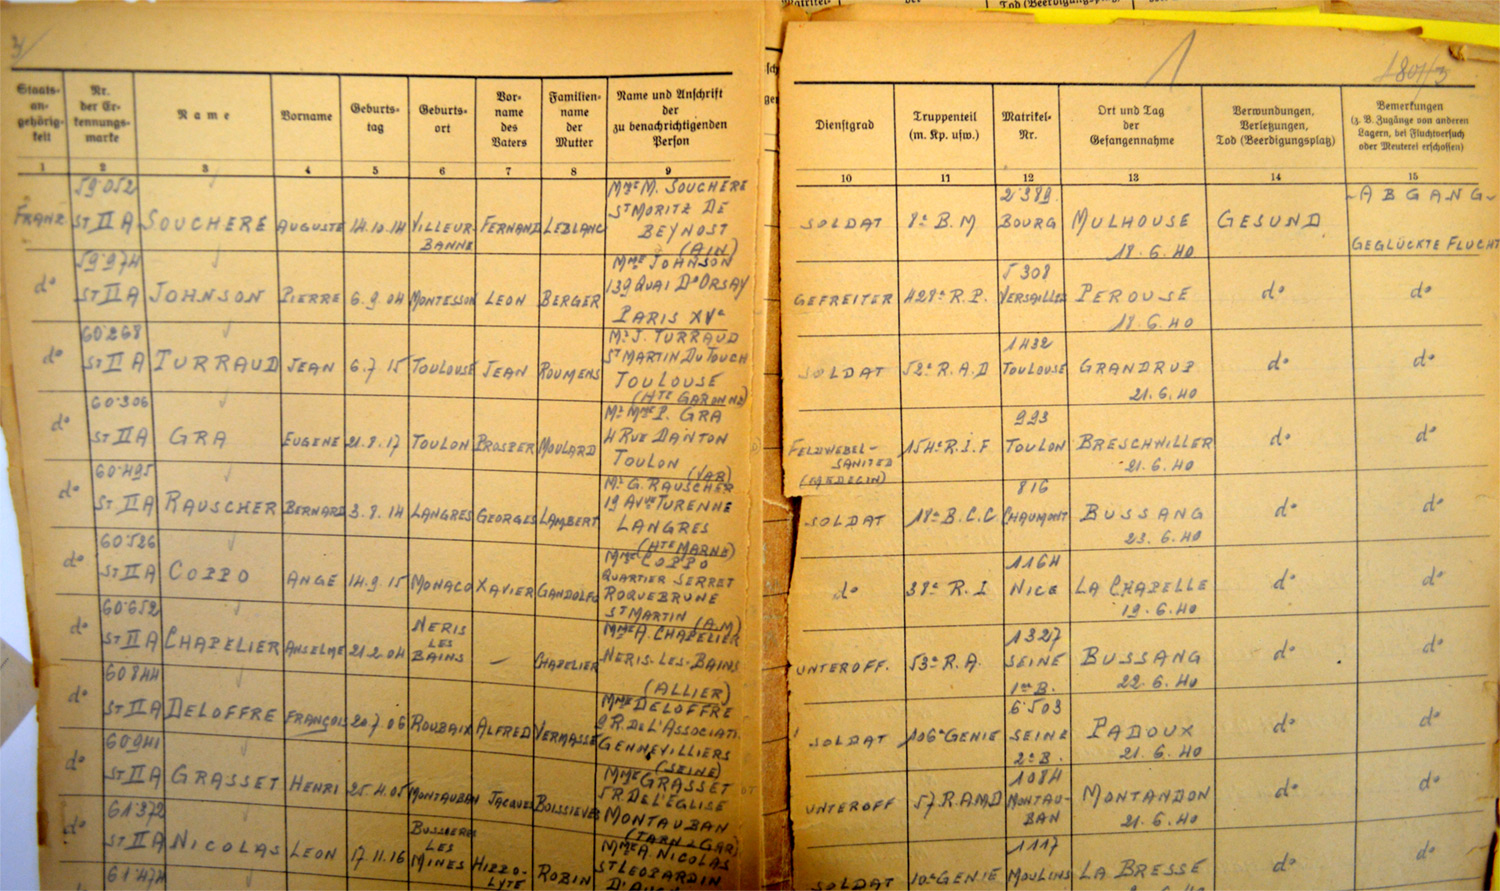 3
1
Staats-
an-
gehörig-
keit
Nr.
der Er-
kennungs-
marke
Name
Vorname
Geburts-
tag
Geburts-
ort
Vor-
name
des
Vaters
Familien-
name
der
Mutter
Name und Anschrift
der
zu benachrichtigenden
Person
Dienstgrad
Truppenteil
(m. Kp. usw.)
Matrikel-
Nr.
Ort und Tag
der
Gefangennahme
Verwundungen,
Verletzungen,
Tod (Beerdigungsplatz)
Bemerkungen
(z. B. Zugänge von anderen
Lagern, bei Fluchtversuch
oder Meuterei erschossen)
1 2 3 4 5 6 7 8 9 10 11 12 13 14 15
59.052 MME M. SOUCHERE 2.389 - ABGANG -
FRANZ. ST II A SOUCHERE AUGUSTE 14.10.14 VILLEUR- FERNAND LEBLANC ST MORITZ DE SOLDAT 8e B.M BOURG MULHOUSE GESUND
BANNE BEYNOST 18.6.40 GEGLÜCKTE FLUCHT
(AIN)
59.974 MME JOHNSON 5308
do ST II A JOHNSON PIERRE 6.9.04 MONTESSON LEON BERGER 139 QUAI D'ORSAY GEFREITER 428e R.P. VERSAILLES PEROUSE do do
PARIS XVe 18.6.40
60.268 MR J. TURRAUD 1432
do ST II A TURRAUD JEAN 6.7.15 TOULOUSE JEAN ROUMENS ST MARTIN DU TOUCH SOLDAT 52e R.A.D TOULOUSE GRANDRUP do do
TOULOUSE 21.6.40
(HTE GARONNE)
60.306 MR MME P. GRA 993
do ST II A GRA EUGENE 21.8.17 TOULON PROSPER MOULARD 4 RUE DANTON FELDWEBEL- 154e R.I.F TOULON BRESCHWILLER do do
TOULON SANITED 21.6.40
(VAR) (MEDECIN)
60.495 MR G. RAUSCHER 816
do ST II A RAUSCHER BERNARD 3.8.14 LANGRES GEORGES LAMBERT 19 AVUE TURENNE SOLDAT 18e B.C.C CHAUMONT BUSSANG do do
LANGRES 23.6.40
(HTE MARNE)
60.526 MME COPPO 1164
do ST II A COPPO ANGE 14.9.15 MONACO XAVIER GANDOLFO QUARTIER SERRET do 38e R.I NICE LA CHAPELLE do do
ROQUEBRUNE 19.6.40
ST MARTIN (A.M)
60.652 NERIS MME A. CHAPELIER 1327
do ST II A CHAPELIER ANSELME 21.2.04 LES - CHAPELIER NERIS-LES-BAINS UNTEROFF. 53e R.A. SEINE BUSSANG do do
BAINS (ALLIER) 1er B. 22.6.40
60.844 MME DELOFFRE 6.503
do ST II A DELOFFRE FRANÇOIS 20.7.06 ROUBAIX ALFRED VERMASSE 9 R. DE L'ASSOCIAT. SOLDAT 106e GENIE SEINE PADOUX do do
GENNEVILLIERS 2e B. 21.6.40
(SEINE)
60.941 MME GRASSET 1084
do ST II A GRASSET HENRI 25.4.05 MONTAUBAN JACQUES BOISSIEVES 5 R. DE L'EGLISE UNTEROFF 57 R.A.M.D MONTAU- MONTANDON do do
MONTAUBAN BAN 21.6.40
(TARN & GAR)
61.372 BUSSIERES MME A. NICOLAS 1117
do ST II A NICOLAS LEON 17.11.16 LES HIPPO- ROBIN ST LEOPARDIN SOLDAT 10e GENIE MOULINS LA BRESSE do do
MINES LYTE D'AUGY
61.474